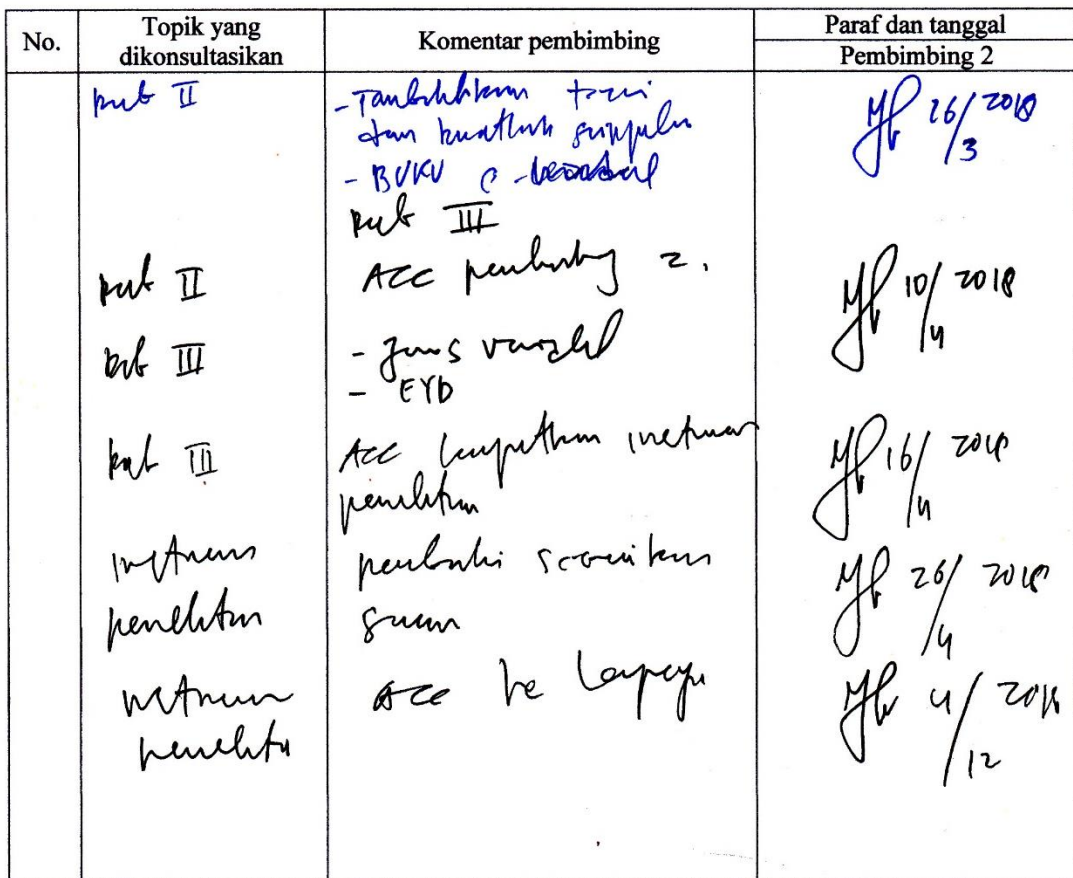 No.
Topik yang dikonsultasikan
Komentar pembimbing
Paraf dan tanggal
Pembimbing 2
bab II
- Tambahkan teori
dan buatlah
- BUKU
26/3 2018
bab III
bab II
ACC pembimbing 2.
10/4 2018
bab III
- Jenis variabel
- EYD
bab III
ACC lanjutkan instrumen
penelitian
16/4 2018
instrumen
penelitian
perbaiki sesuaikan
saran
26/4 2018
instrumen
penelitian
ACC ke lapangan
4/12 2018